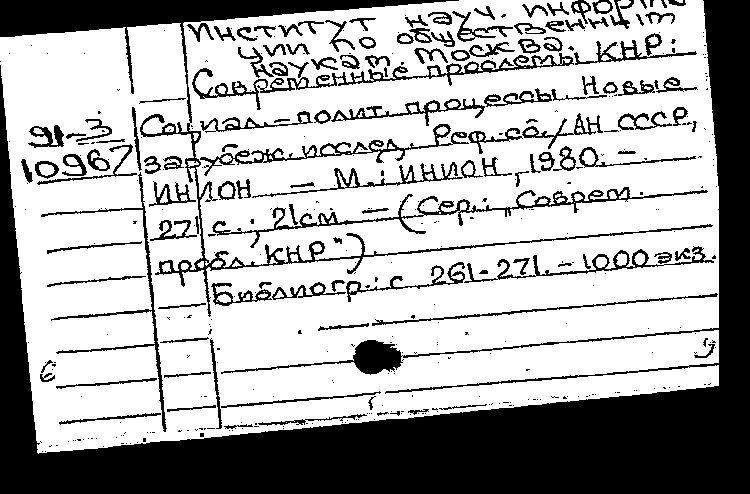 Институт науч. информа
ции по общественным
наукам. Москва.
Современные проблемы КНР:
Социал.-полит. процессы. Новые
91-3
зарубеж. исслед. Реф. сб./АН СССР,
10967
ИНИОН — М.: ИНИОН, 1980. –
271 с.; 21см. — (Сер.: „Соврем.
пробл. КНР").
Библиогр.: с 261-271. – 1000 экз.
б